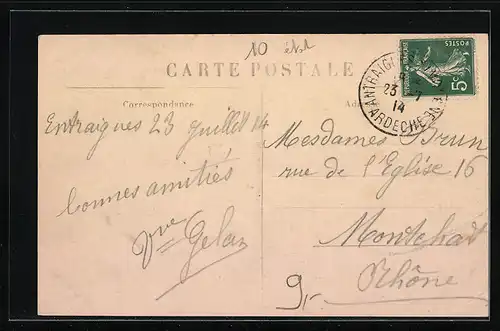 10
CARTE POSTALE
Correspondance
Entraigues 23 Juillet 14
bonnes amitiés
Vve Gelas
ANTRAIGUES
23 -7
14
ARDECHE
POSTES
5c
Mesdames Brun
rue de l'Eglise 16
Montchat
Rhône
9,-